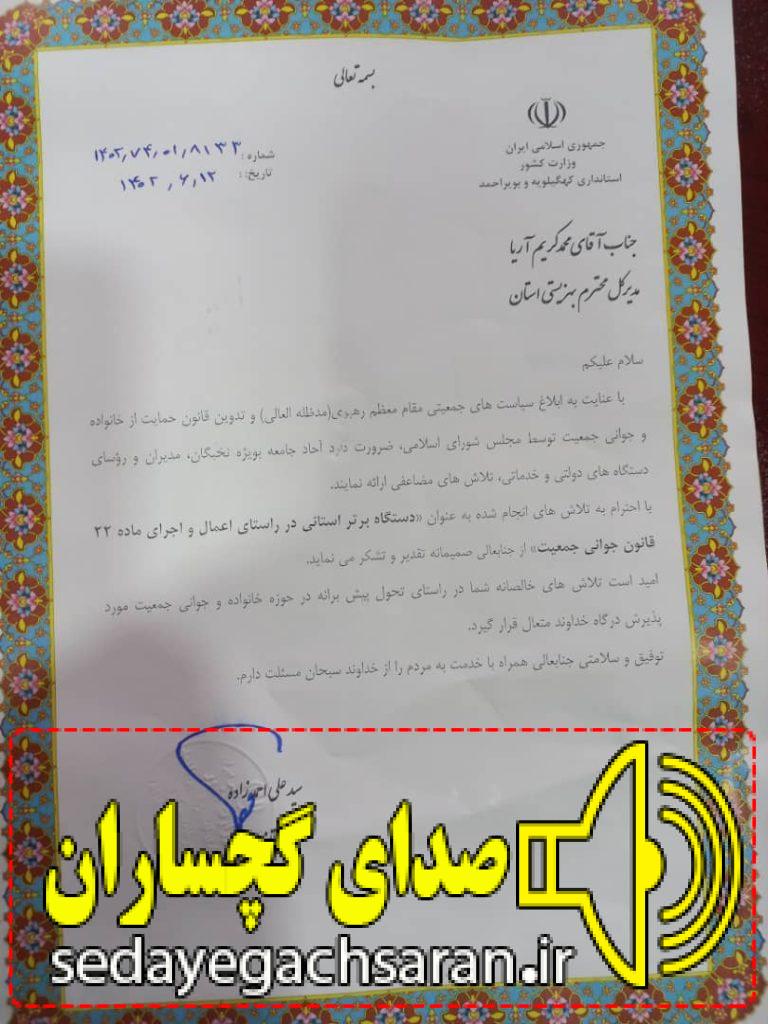 بسمه تعالی
جمهوری اسلامی ایران
وزارت کشور
استانداری کهگیلویه و بویراحمد
شماره : ۱۴۰۲٫۷۴٫۰۱٫۸۱۳۳
تاریخ: : ۱۴۰۲٫۶٫۱۲
جناب آقای محمد کریم آریا
مدیرکل محترم بهزیستی استان
سلام علیکم
با عنایت به ابلاغ سیاست های جمعیتی مقام معظم رهبری(مدظله العالی) و تدوین قانون حمایت از خانواده
و جوانی جمعیت توسط مجلس شورای اسلامی، ضرورت دارد آحاد جامعه بویژه نخبگان، مدیران و رؤسای
دستگاه های دولتی و خدماتی، تلاش های مضاعفی ارائه نمایند.
با احترام به تلاش های انجام شده به عنوان «دستگاه برتر استانی در راستای اعمال و اجرای ماده ۲۲
قانون جوانی جمعیت» از جنابعالی صمیمانه تقدیر و تشکر می نماید.
امید است تلاش های خالصانه شما در راستای تحول پیش برانه در حوزه خانواده و جوانی جمعیت مورد
پذیرش درگاه خداوند متعال قرار گیرد.
توفیق و سلامتی جنابعالی همراه با خدمت به مردم را از خداوند سبحان مسئلت دارم.
سید علی احمدزاده
صدای گچساران
sedayegachsaran.ir